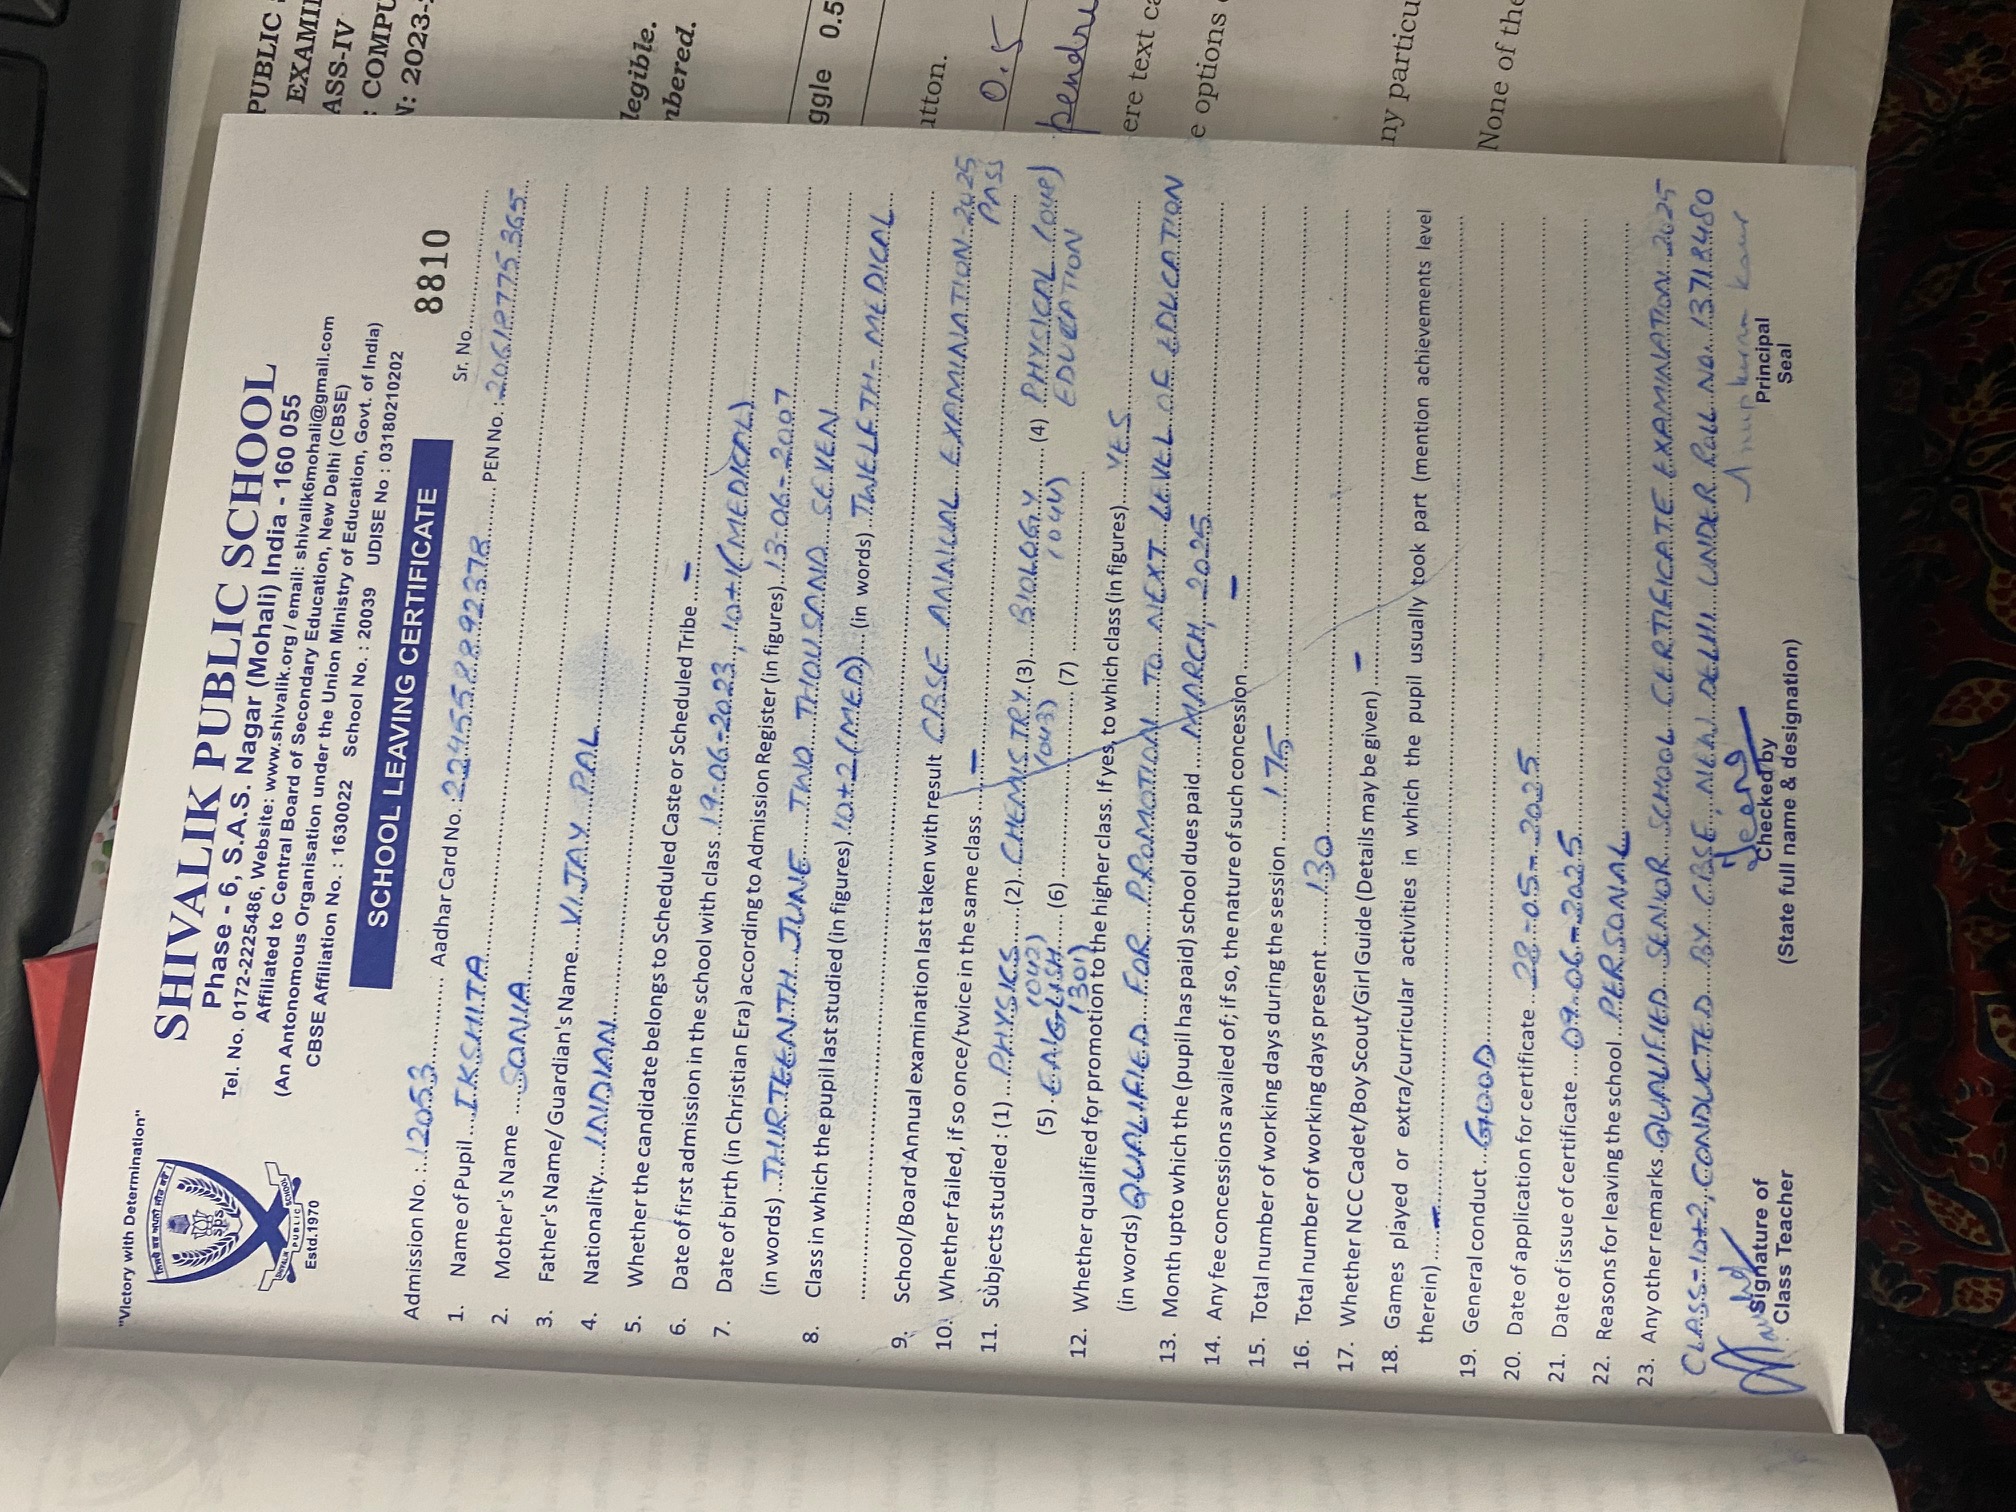 "Victory with Determination"
SHIVALIK PUBLIC SCHOOL
Phase - 6, S.A.S. Nagar (Mohali) India - 160 055
Tel. No. 0172-2225486, Website: www.shivalik.org / email: shivalik6mohali@gmail.com
Affiliated to Central Board of Secondary Education, New Delhi (CBSE)
(An Antonomous Organisation under the Union Ministry of Education, Govt. of India)
CBSE Affiliation No. : 1630022 School No. : 20039 UDISE No : 03180210202
sps
SHIVALIK PUBLIC SCHOOL
Estd.1970
SCHOOL LEAVING CERTIFICATE
8810
Sr. No.
Admission No. : 12053 Aadhar Card No. 224558892378 PEN No. : 20618775365
1. Name of Pupil IKSHITA
2. Mother's Name SONIA
3. Father's Name/ Guardian's Name VIJAY PAL
4. Nationality INDIAN
5. Whether the candidate belongs to Scheduled Caste or Scheduled Tribe -
6. Date of first admission in the school with class 19-06-2023, 10+1(MEDICAL)
7. Date of birth (in Christian Era) according to Admission Register (in figures) 13-06-2007
(in words) THIRTEENTH JUNE TWO THOUSAND SEVEN
8. Class in which the pupil last studied (in figures) 10+2(MED) (in words) TWELFTH-MEDICAL
9. School/Board Annual examination last taken with result CBSE ANNUAL EXAMINATION-2025
PASS
10. Whether failed, if so once/twice in the same class -
11. Subjects studied : (1) PHYSICS (2) CHEMISTRY (3) BIOLOGY (4) PHYSICAL (048)
(042) (043) (044) EDUCATION
(5) ENGLISH (6) (7)
(301)
12. Whether qualified for promotion to the higher class. If yes, to which class (in figures) YES
(in words) QUALIFIED FOR PROMOTION TO NEXT LEVEL OF EDUCATION
13. Month upto which the (pupil has paid) school dues paid MARCH, 2025
14. Any fee concessions availed of; if so, the nature of such concession -
15. Total number of working days during the session 175
16. Total number of working days present 130
17. Whether NCC Cadet/Boy Scout/Girl Guide (Details may be given) -
18. Games played or extra/curricular activities in which the pupil usually took part (mention achievements level
therein) -
19. General conduct GOOD
20. Date of application for certificate 28-05-2025
21. Date of issue of certificate 09-06-2025
22. Reasons for leaving the school PERSONAL
23. Any other remarks QUALIFIED SENIOR SCHOOL CERTIFICATE EXAMINATION 2025
CLASS-10+2, CONDUCTED BY CBSE, NEW DELHI UNDER ROLL NO. 13718480
Anupkiran Kaur
Signature of Checked by Principal
Class Teacher (State full name & designation) Seal
PUBLIC
EXAMI
ASS-IV
: COMPU
N: 2023-
legible.
nbered.
ggle 0.5
utton.
0.5
pendri
ere text ca
e options
ny particu
None of the